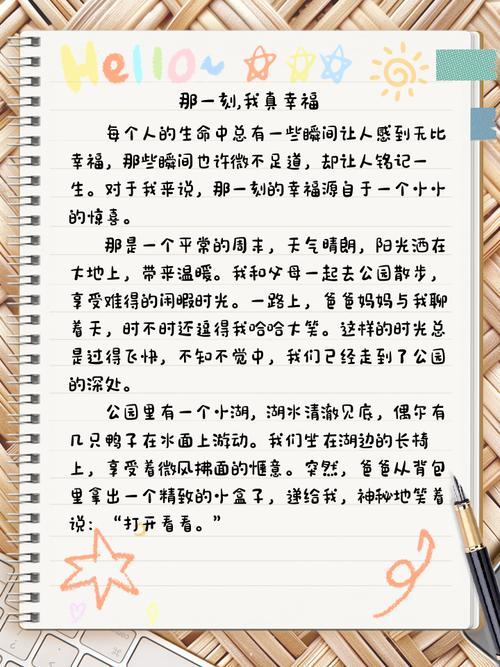 Hello~
那一刻,我真幸福
每个人的生命中总有一些瞬间让人感到无比
幸福，那些瞬间也许微不足道，却让人铭记一
生。对于我来说，那一刻的幸福源自于一个小小
的惊喜。
那是一个平常的周末，天气晴朗，阳光洒在
大地上，带来温暖。我和父母一起去公园散步，
享受难得的闲暇时光。一路上，爸爸妈妈与我聊
着天，时不时还逗得我哈哈大笑。这样的时光总
是过得飞快，不知不觉中，我们已经走到了公园
的深处。
公园里有一个小湖，湖水清澈见底，偶尔有
几只鸭子在水面上游动。我们坐在湖边的长椅
上，享受着微风拂面的惬意。突然，爸爸从背包
里拿出一个精致的小盒子，递给我，神秘地笑着
说：“打开看看。”